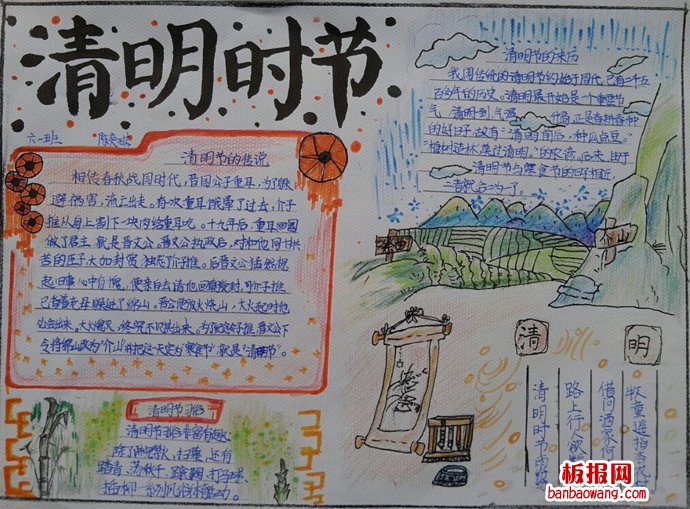 清明时节
六一班
清明节的传说
相传春秋战国时代，晋国公子重耳，为了躲
避祸害，流亡出走。有次重耳饿晕了过去，介子
推从身上割下一块肉给重耳吃。十九年后，重耳回国
做了君主，就是晋文公。晋文公执政后，对和他同甘共
苦的臣子大加封赏，独忘了介子推。后晋文公猛然想
起旧事心中有愧，便亲自去请他回来受封，可介子推
已背着老母躲进了绵山。晋公便放火烧山，大火起时他
会出来。大火熄灭，终究不见出来。为了纪念介子推，晋文公下
令将绵山改为"介山"，并把这一天定为"寒食节"，就是"清明节"。
清明节习俗
清明节习俗丰富有趣，
除了禁火、扫墓，还有
踏青、荡秋千、蹴鞠、打马球、
插柳一系列风俗体育活动。
清明节的来历
我国传统的清明节约始于周代，已有二千五
百多年的历史。清明最开始是一个重要节
气，清明一到，气温升高，正是春耕春种
的好日子，故有"清明前后，种瓜点豆。"
"植树造林，莫过清明。"的农谚。后来，由于
清明节与寒食节的日子相近，
二者就合为一了。
介山
清
明
清明时节雨
路上行人欲
借问酒家何
牧童遥指杏花村
板报网
banbaowang.com